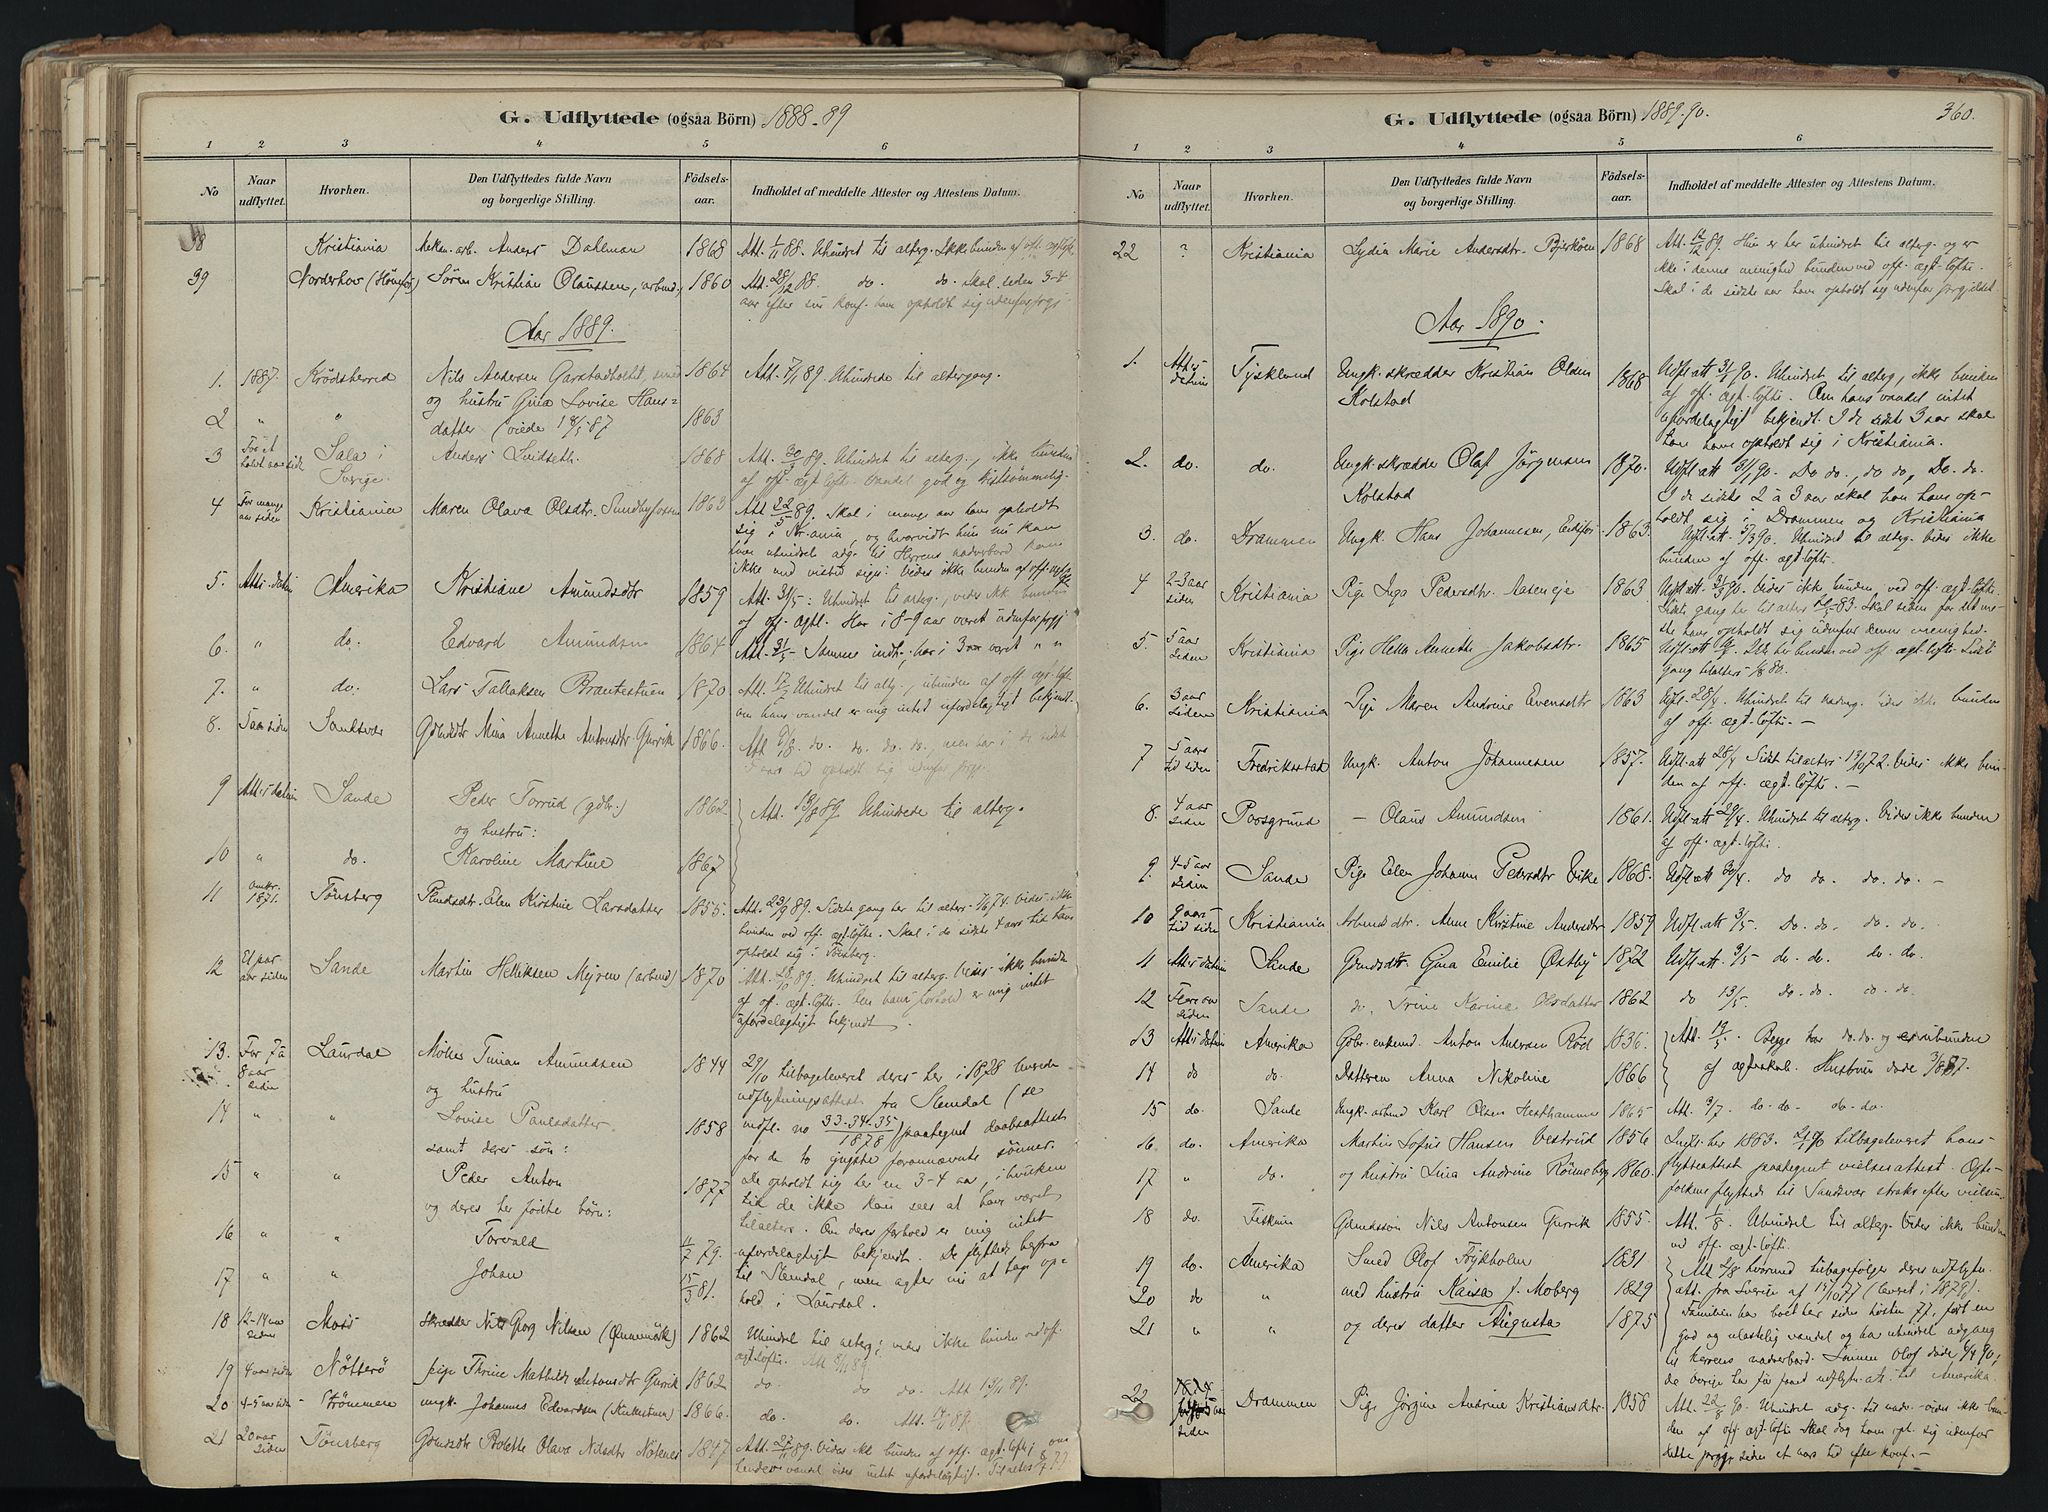 G. Udflyttede (ogsaa Börn) 1888-89
1 2 3 4 5 6
No
Naar udflyttet.
Hvorhen.
Den Udflyttedes fulde Navn og borgerlige Stilling.
Födselsaar.
Indholdet af meddelte Attester og Attestens Datum.
38 Kristiania Anders Dahlman 1868 Att. 1/11 88. Uhindret til alterg. Ikke bunden af off.
39 Norderhov (Hönefos) Sören Kristian Olaussen, arbmd. 1860 Att. 28/12 88. do. do. Skal siden 3-4
aar efter sin konf. have opholdt sig udenfor prgj.
Aar 1889.
1. 1887. Krödsherred Nils Andersen Garstadholtet, smed 1864 Att. 7/1 89. Uhindrede til altergang.
2 " " og hustru Gina Lovise Hansdatter (viede 18/5 87 1863
3 For et halvt aar siden Sala i Sverige Anders Lridseth. 1868 Att. 30/3 89. Uhindret til alterg., ikke bunden
af off. ægt. löfte. Vandel god og kristsömmelig.
4 For mange aar siden Kristiania Maren Olava Olsdtr. Sundbyfossen 1863 Att. 22/5 89. Skal i mange aar have opholdt
sig i Kr.ania, og hvorvidt hun nu kan
have uhindret adg. til Herrens nadverbord kan
ikke med vished siges. Vides ikke bunden af off.
5. Att. datum Amerika Kristiane Amundsdtr 1859 Att. 31/5: Uhindret til alterg., vides ikk bunden
af off. ægtl. Har i 8-9 aar været udenfor prgj.
6. " do. Edvard Amundsen 1864 Att. 31/5 Samme indh., har i 3 aar været " "
7. " do. Lars Tollaksen Brantestuen 1870 Att. 17/5 Uhindret til altg., ubunden af off. ægt. löfte
om hans vandel er mig intet ufordelagtigt bekjendt.
8. 5 aar siden Sandsvær Gdmdsdtr Mina Annette Antonsdtr Gurrik 1866. Att. do. do. do. do., men har i de sidste
5 aars tid opholdt sig udenfor prgj.
9 Att.s datum Sande Peder Torrud (gdbr.) 1862 Att. 19/8 89. Uhindrede til alterg.
og hustru:
10 " do. Karoline Martine 1867
11 omtr. 1871. Tönsberg Plmdsdtr. Elen Kirstine Larsdatter 1855. Att. 23/9 89. Sidste gang her til alters 7/6 74. Vides ikke
bunden ved off. ægt. löfte. Skal i de sidste aars tid have
opholdt sig i Tönsberg.
12 Et par aar siden Sande Martin Helliksen Myren (arbmd) 1870 Att. 28/10 89. Uhindret til alterg. Vides ikke bunden
af off. ægt. löfte. Om hans forhold er mig intet
ufordelagtigt bekjendt.
13. For 7 à 8 aar siden Laurdal Möller Tinian Amundsen 1844 29/10 tilbageleveret deres her i 1878 leverede
og hustru udflytningsattest fra Slemdal (se
14 " " Lovise Paulsdatter 1858 indfl. no 33-34-35/1878) paategnet daabsattest
samt deres sön: for de to yngste forannævnte sönner.
15 " " Peder Anton 1877 De opholdt sig her en 3-4 aar, i hvilken
og deres her födte börn: tid de ikke kan sees at have været
16 " " Torvald 11/7 79. tilalters. Om deres forhold er mig intet
ufordelagtigt bekjendt. De flyttede herfra
17 " " Johan 15/3 81. til Slemdal, men agter nu at tage ophold
i Laurdal.
18 12-14 aar siden Moss Skrædder Nils Georg Nilsen 1862 Uhindret til alterg.; vides ikke bunden ved off.
ægt. löfte. Att 8/11 89
19 4 aar siden Nötterö pige Thrine Mathilde Antonsdtr Gurrik 1862 do. do do. Att 13/11 89.
20 4-5 aar siden Strömmen ungk. Johannes Edvardsen 1866. do. do. Att. 89.
21 20 aar siden Tönsberg Gdmdsdtr Bolette Olava Nilsdtr Nötenes 1847 Att. 27/11 89. Vides ikke bunden af off. ægt. löfte; om
hendes vandel vides intet ufordelagtigt.
G. Udflyttede (ogsaa Börn) 1889-90. 360.
1 2 3 4 5 6
No
Naar udflyttet.
Hvorhen.
Den Udflyttedes fulde Navn og borgerlige Stilling.
Födselsaar.
Indholdet af meddelte Attester og Attestens Datum.
22 ? Kristiania Lydia Marie Andersdtr. Bjerköen 1868 Att. 12/12 89. Hun er her uhindret til alterg. og er
ikke i denne menighed bunden ved off. ægt. löfte.
Skal i de sidste aar have opholdt sig udenfor prgjeldet
Aar 1890.
1. Att.s datum Tyskland Ungk. skrædder Kristian Olsen Kolstad 1868 Udfl. att. 3/1 90. Uhindret til alterg., ikke bunden
af off. ægt. löfte. Om hans vandel intet
ufordelagtigt bekjendt. I de sidste 3 aar skal
han have opholdt sig i Kristiania.
2. do. do. Ungk. skrædder Olaf Jörgensen Kolstad 1870. Udfl. att 3/1 90. Do do., do do, Do. do.
I de sidste 2 à 3 aar skal han have opholdt
sig i Drammen og Kristiania
3. do. Drammen Ungk. Hans Johannesen, 1863. Udfl. att. 5/3 90. Uhindret til alterg. Vides ikke
bunden af off. ægt. löfte.
4 2-3 aar siden Kristiania Pige Inga Pedersdtr. Aaseneje 1863 Udfl. att. 31/3 90. Vides ikk bunden ved off. ægt. löfte.
Sidste gang her til alters 83. Skal siden for det meste
have opholdt sig udenfor denne menighed.
5. 5 aar siden Kristiania Pige Helle Annette Jakobsdtr. 1865 Udfl. att. Ikke bunden ved off. ægt. löfte. Sidste
gang tilalters 80.
6. 3 aar siden Kristiania Pige Maren Andrine Evensdtr 1863 Udfl. 28/4. Uhindret til nadverg. Vides ikke bunden
af off. ægt. löfte. -
7 5 aars tid siden Fredriksstad Ungk. Anton Johannesen 1857. Udfl. att 28/4 Sidst tilalters 13/10 72. Vides ikke bunden
af off. ægt. löfte. -
8. 4 aar siden Porsgrund - Olaus Amundsen 1861. Udfl. att 29/4. Uhindret til alterg. Vides ikke bunden
af off. ægt. löfte.
9. 4-5 aar siden Sande Pige Elen Johanne Pedersdtr Eike 1868. Udfl. att 30/4. do do. do. do. -
10 9 aars tid siden Kristiania Arbmdsdtr. Anne Kirstine Andersdtr 1859 Udfl. att 3/5. Do. do. do. do.
11 Att.s datum Sande Gdmdsdtr. Gina Emilie Östby 1872 Udfl. att. 9/5 do. do. do. do.
12 Flere aar siden Sande do. Trine Karine Olsdatter 1862 do 13/5. do. do. do. do.
13 Att.s datum Amerika Gdbr. enkemd. Anton Andersen Röd 1836. Att. 19/5. Begge har do. do. og er ubundne
14 do do. Datteren Anna Nikoline 1866 af ægteskab. Hustruen döde 3/8 87.
15 do. Sande Ungk. arbmd Karl Olsen Hesthammer 1865 Att. 3/7. do. do. do. do.
16. do. Amerika Martin Sofus Hansen Vestrud 1856 Indfl. her 1883. 21/7 90 tilbageleveret hans
17 " do. og hustru Lina Andrine Rönneberg 1860. flytteattest paategnet vielsesattest. Ægtefolkene
flyttede til Sandsvær straks efter vielsen.
18 do. Fiskum Gdmdssön Nils Antonsen Gurrik 1855. Att. 1/8. Uhindret til alterg. Vides ikke bunden
ved off. ægt. löfte.
19 do. Amerika Smed Olof Frykholm 1831 Att 4/8 hvormed tilbagefölger deres udflytn.
20 do " med hustru Kaisa f. Moberg 1829 att. fra Sverige af 15/10 77 (levret i 1879).
21 " " og deres datter Augusta 1875 Familien har boet her siden hösten 77, fört en
god og ulastelig vandel og har uhindret adgang
til Herrens nadverbord. Sönnen Olof döde 6/4 90;
de övrige har faaet udflytn. att. til Amerika.
22 5 aar siden Drammen Pige Jörgine Andrine Kristiansdtr. 1858 Att. 22/8 90. Uhindret adg. til nadv. vides ikke bunden
af off. ægt. löfte. Skal dog have opt. sig udenfor
dette prgj. siden et aars tid efter konf. -